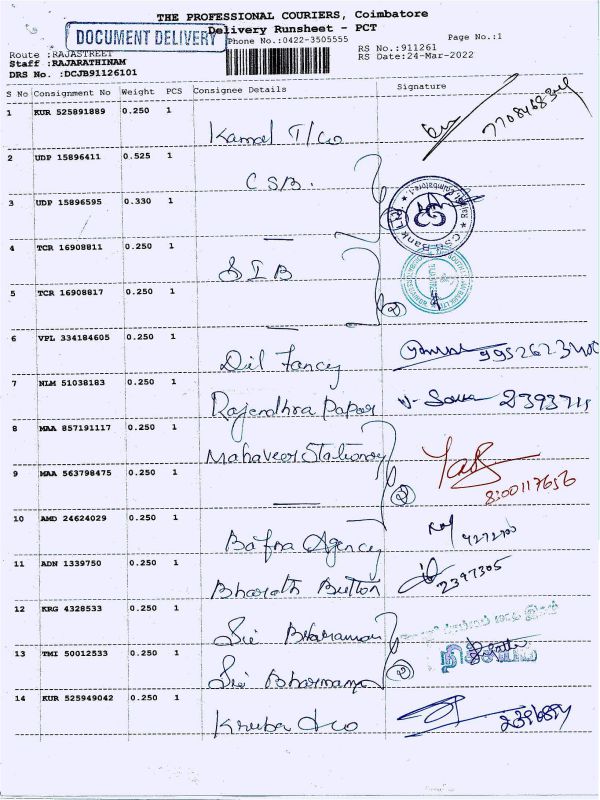 THE PROFESSIONAL COURIERS, Coimbatore
DOCUMENT DELIVERY
Delivery Runsheet - PCT
Phone No.:0422-3505555
Page No.:1
Route :RAJASTREET
RS No.:911261
Staff :RAJARATHINAM
RS Date:24-Mar-2022
DRS No. :DCJB91126101
S No Consignment No Weight PCS Consignee Details Signature
1 KUR 525891889 0.250 1 Kamal T/Co
2 UDP 15896411 0.525 1 C S B.
3 UDP 15896595 0.330 1 —
CSB Bank
4 TCR 16908811 0.250 1 S I B
5 TCR 16908817 0.250 1 — 2
6 VPL 334184605 0.250 1 Dil Fancy
7 NLM 51038183 0.250 1 Rajendhra Papar
8 MAA 857191117 0.250 1 Mahaveer Stationory
9 MAA 563798475 0.250 1 — 2 8300117656
10 AMD 24624029 0.250 1 Bafna Agency
11 ADN 1339750 0.250 1 Bharath Button 2397305
12 KRG 4328533 0.250 1 Sri
13 TMI 50012533 0.250 1 Sri 2
14 KUR 525949042 0.250 1 Kruba &co